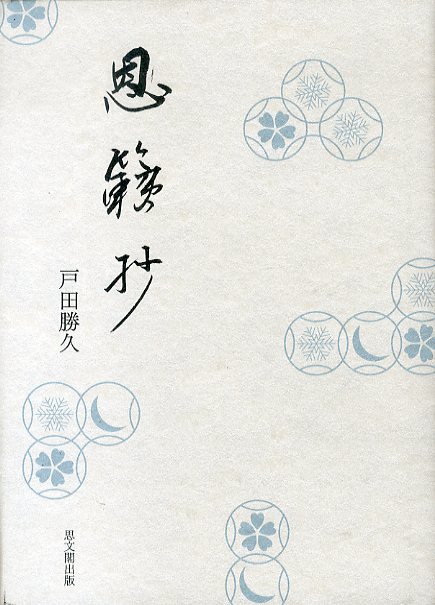 恩籟抄
戸田勝久
思文閣出版